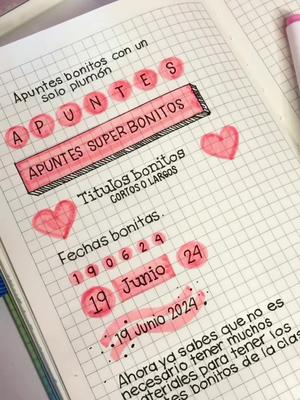 Apuntes bonitos con un
solo plumón
APUNTES
APUNTES SUPER BONITOS
Titulos bonitos
CORTOS O LARGOS
Fechas bonitas.
190624
19 Junio 24
19 Junio 2024
Ahora ya sabes que no es
necesario tener muchos
materiales para tener los
bonitos de la